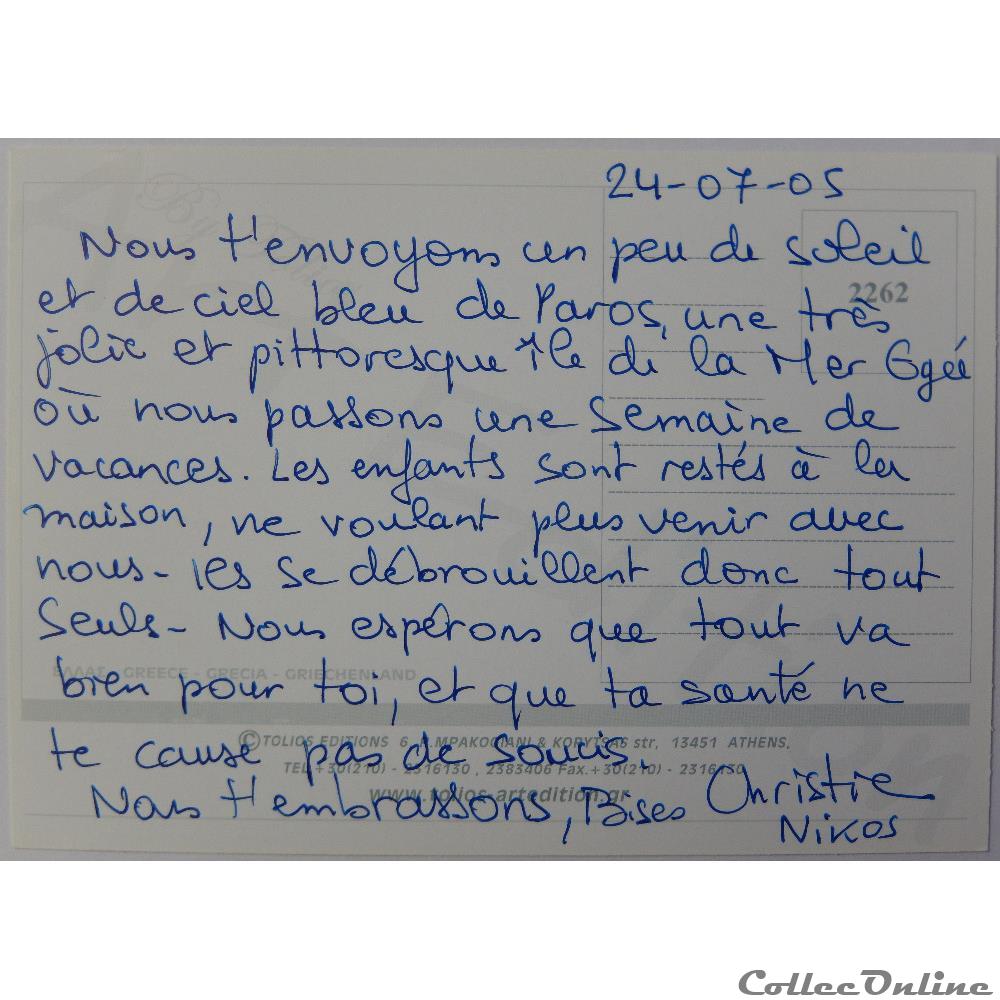 24-07-05
Nous t'envoyons un peu de soleil
2262
et de ciel bleu de Paros, une très
jolie et pittoresque île de la Mer Egée
où nous passons une semaine de
vacances. Les enfants sont restés à la
maison, ne voulant plus venir avec
nous - Ils se débrouillent donc tout
seuls - Nous espérons que tout va
ΕΛΛΑΣ - GREECE - GRECIA - GRIECHENLAND
bien pour toi, et que ta santé ne
© TOLIOS EDITIONS 6, MPAKOGIANI & KORYTSAS str, 13451 ATHENS.
te cause pas de soucis.
TEL +30(210) - 2316130, 2383406 Fax.+30(210) - 2316130
www.tolios-artedition.gr
Nous t'embrassons, Bises Christie
Nikos
CollecOnline